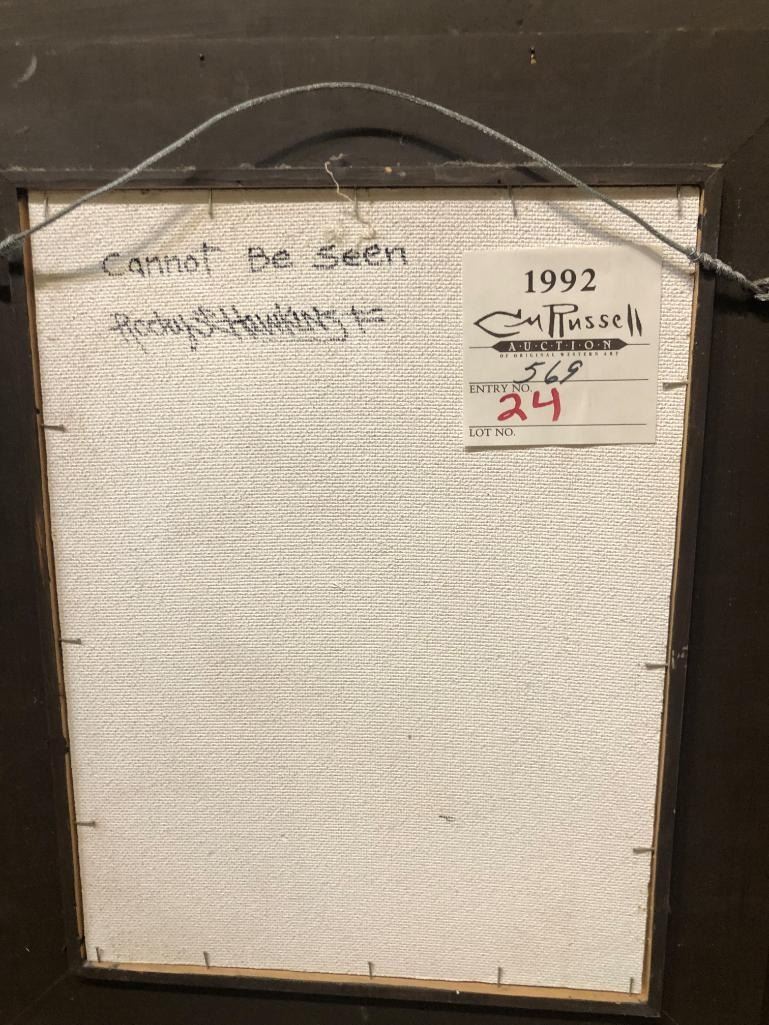 Cannot Be Seen
Rocky Hawkins
1992
CM Russell
AUCTION
OF ORIGINAL WESTERN ART
569
ENTRY NO.
24
LOT NO.